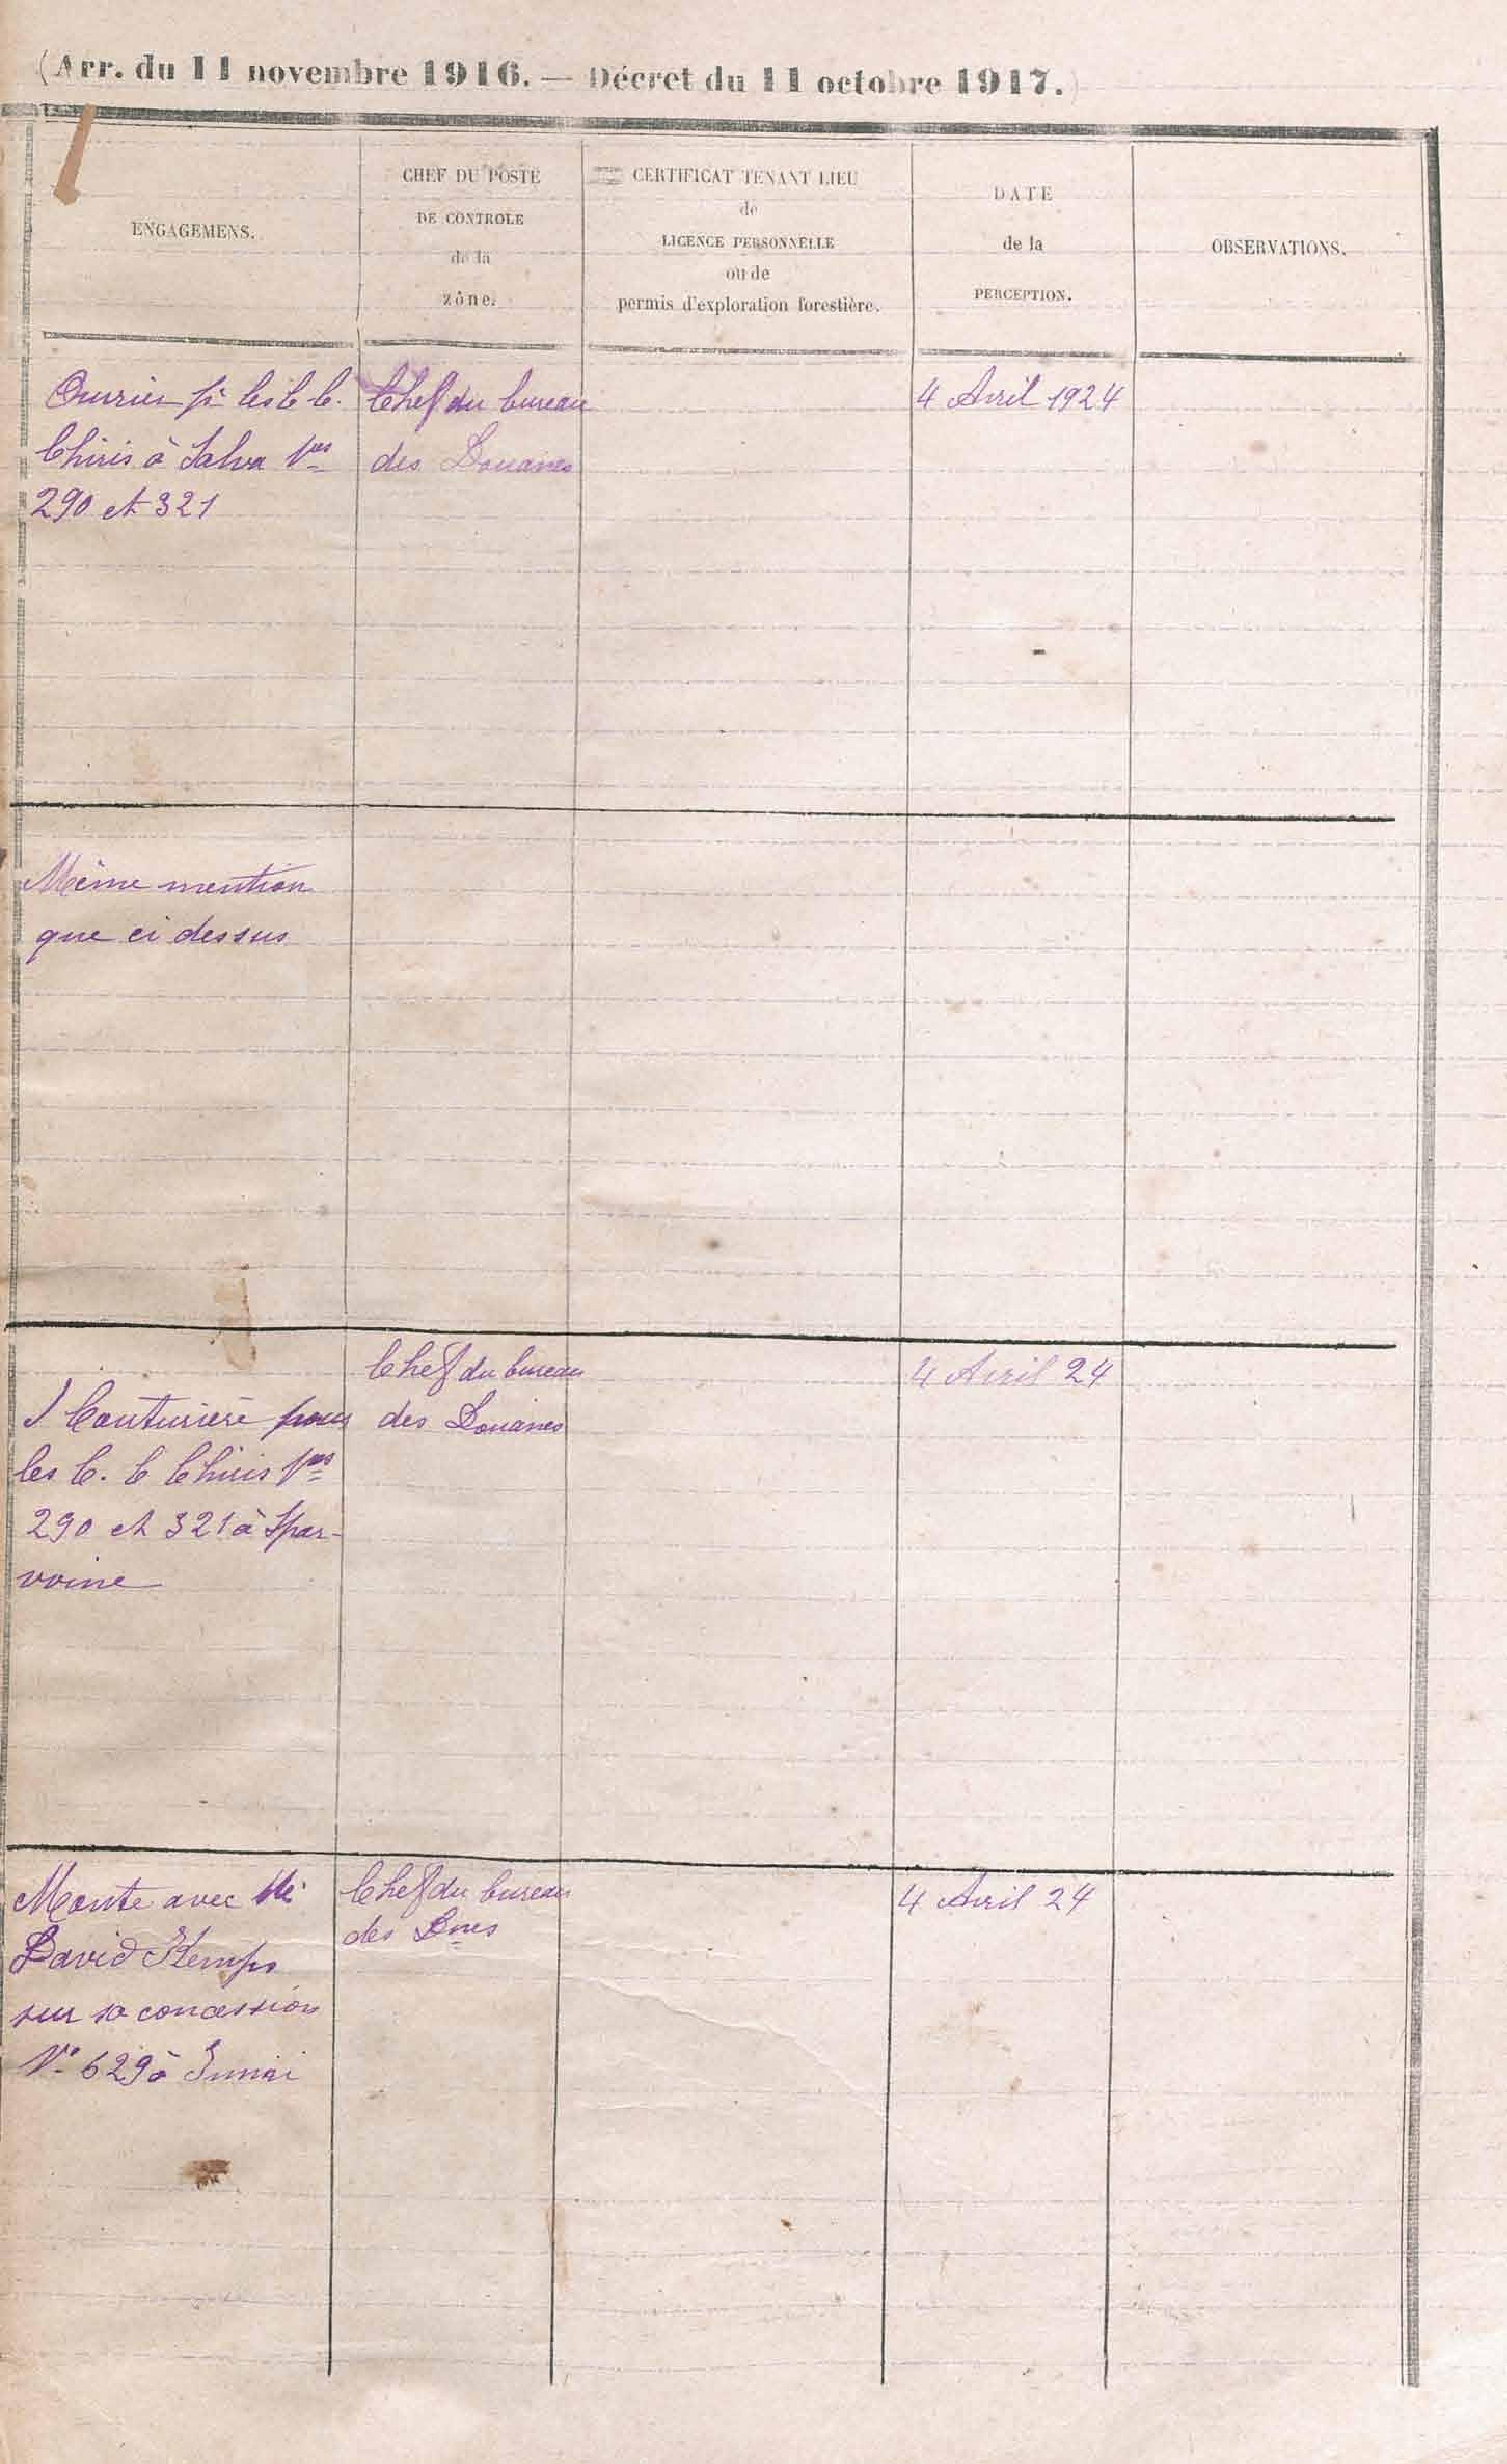 (Arr. du 11 novembre 1916. — Décret du 11 octobre 1917.)
ENGAGEMENS.
CHEF DU POSTE
DE CONTROLE
de la
zône.
CERTIFICAT TENANT LIEU
de
LICENCE PERSONNELLE
ou de
permis d'exploration forestière.
DATE
de la
PERCEPTION.
OBSERVATIONS.
Ouvrier pr les C. C.
Chiris à Salva Nos
290 et 321
Chef du bureau
des Douanes
4 Avril 1924
Même mention
que ci dessus
Couturière pour
les C. C Chiris Nos
290 et 321 à Spar-
voine
Chef du bureau
des Douanes
4 Avril 24
Monte avec
David Kemps
sur sa concession
No 629 à Inini
Chef du bureau
des Dnes
4 Avril 24